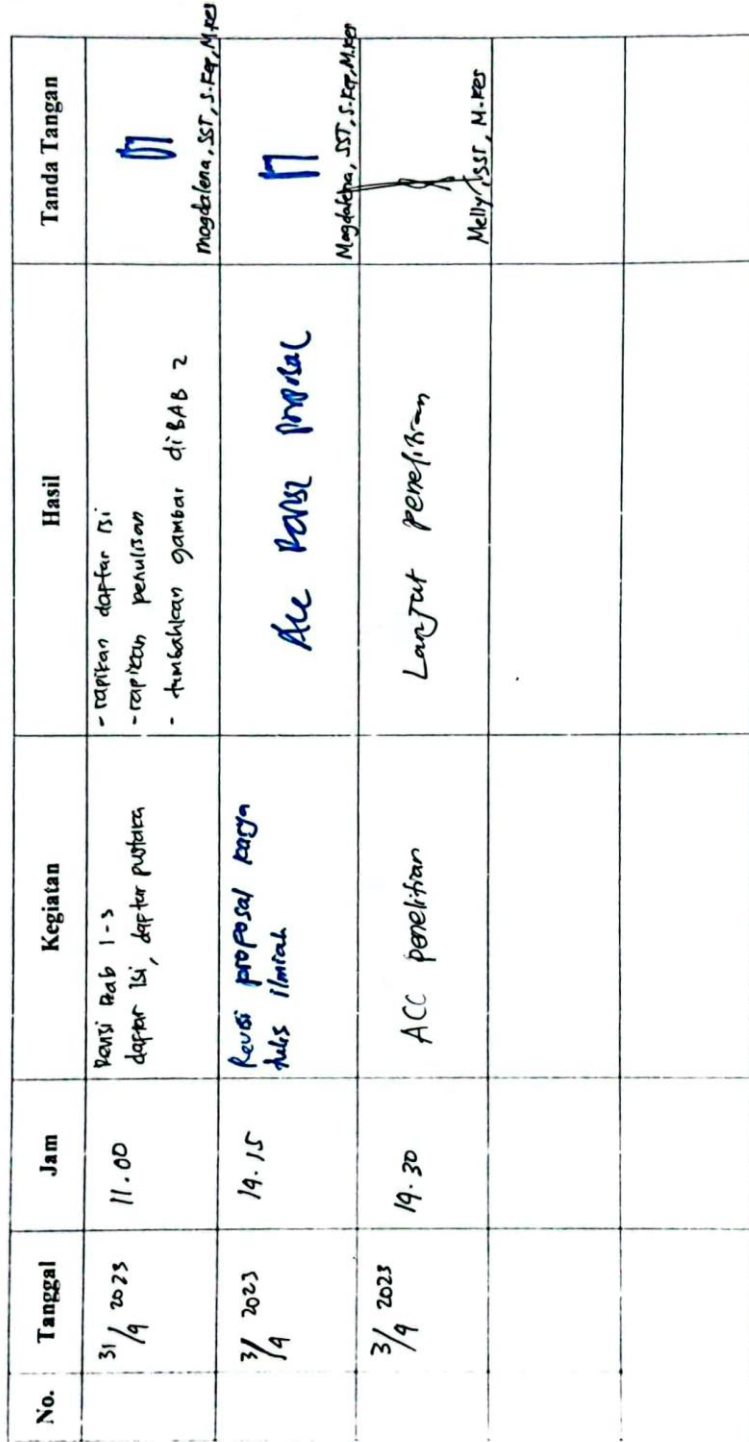 No. Tanggal Jam Kegiatan Hasil Tanda Tangan
31/4 2023 11.00 Revisi Bab 1-3
daftar isi, daftar pustaka
- rapikan daftar isi
- rapikan penulisan
- tambahkan gambar di BAB 2
Magdalena, SST, S.Kep, M.Kes
3/4 2023 14.15 Revisi proposal karya
tulis ilmiah
Acc Revisi proposal
Magdalena, SST, S.Kep, M.Kes
3/4 2023 14.30 ACC penelitian
Lanjut penelitian
Melly, SST, M.Kes